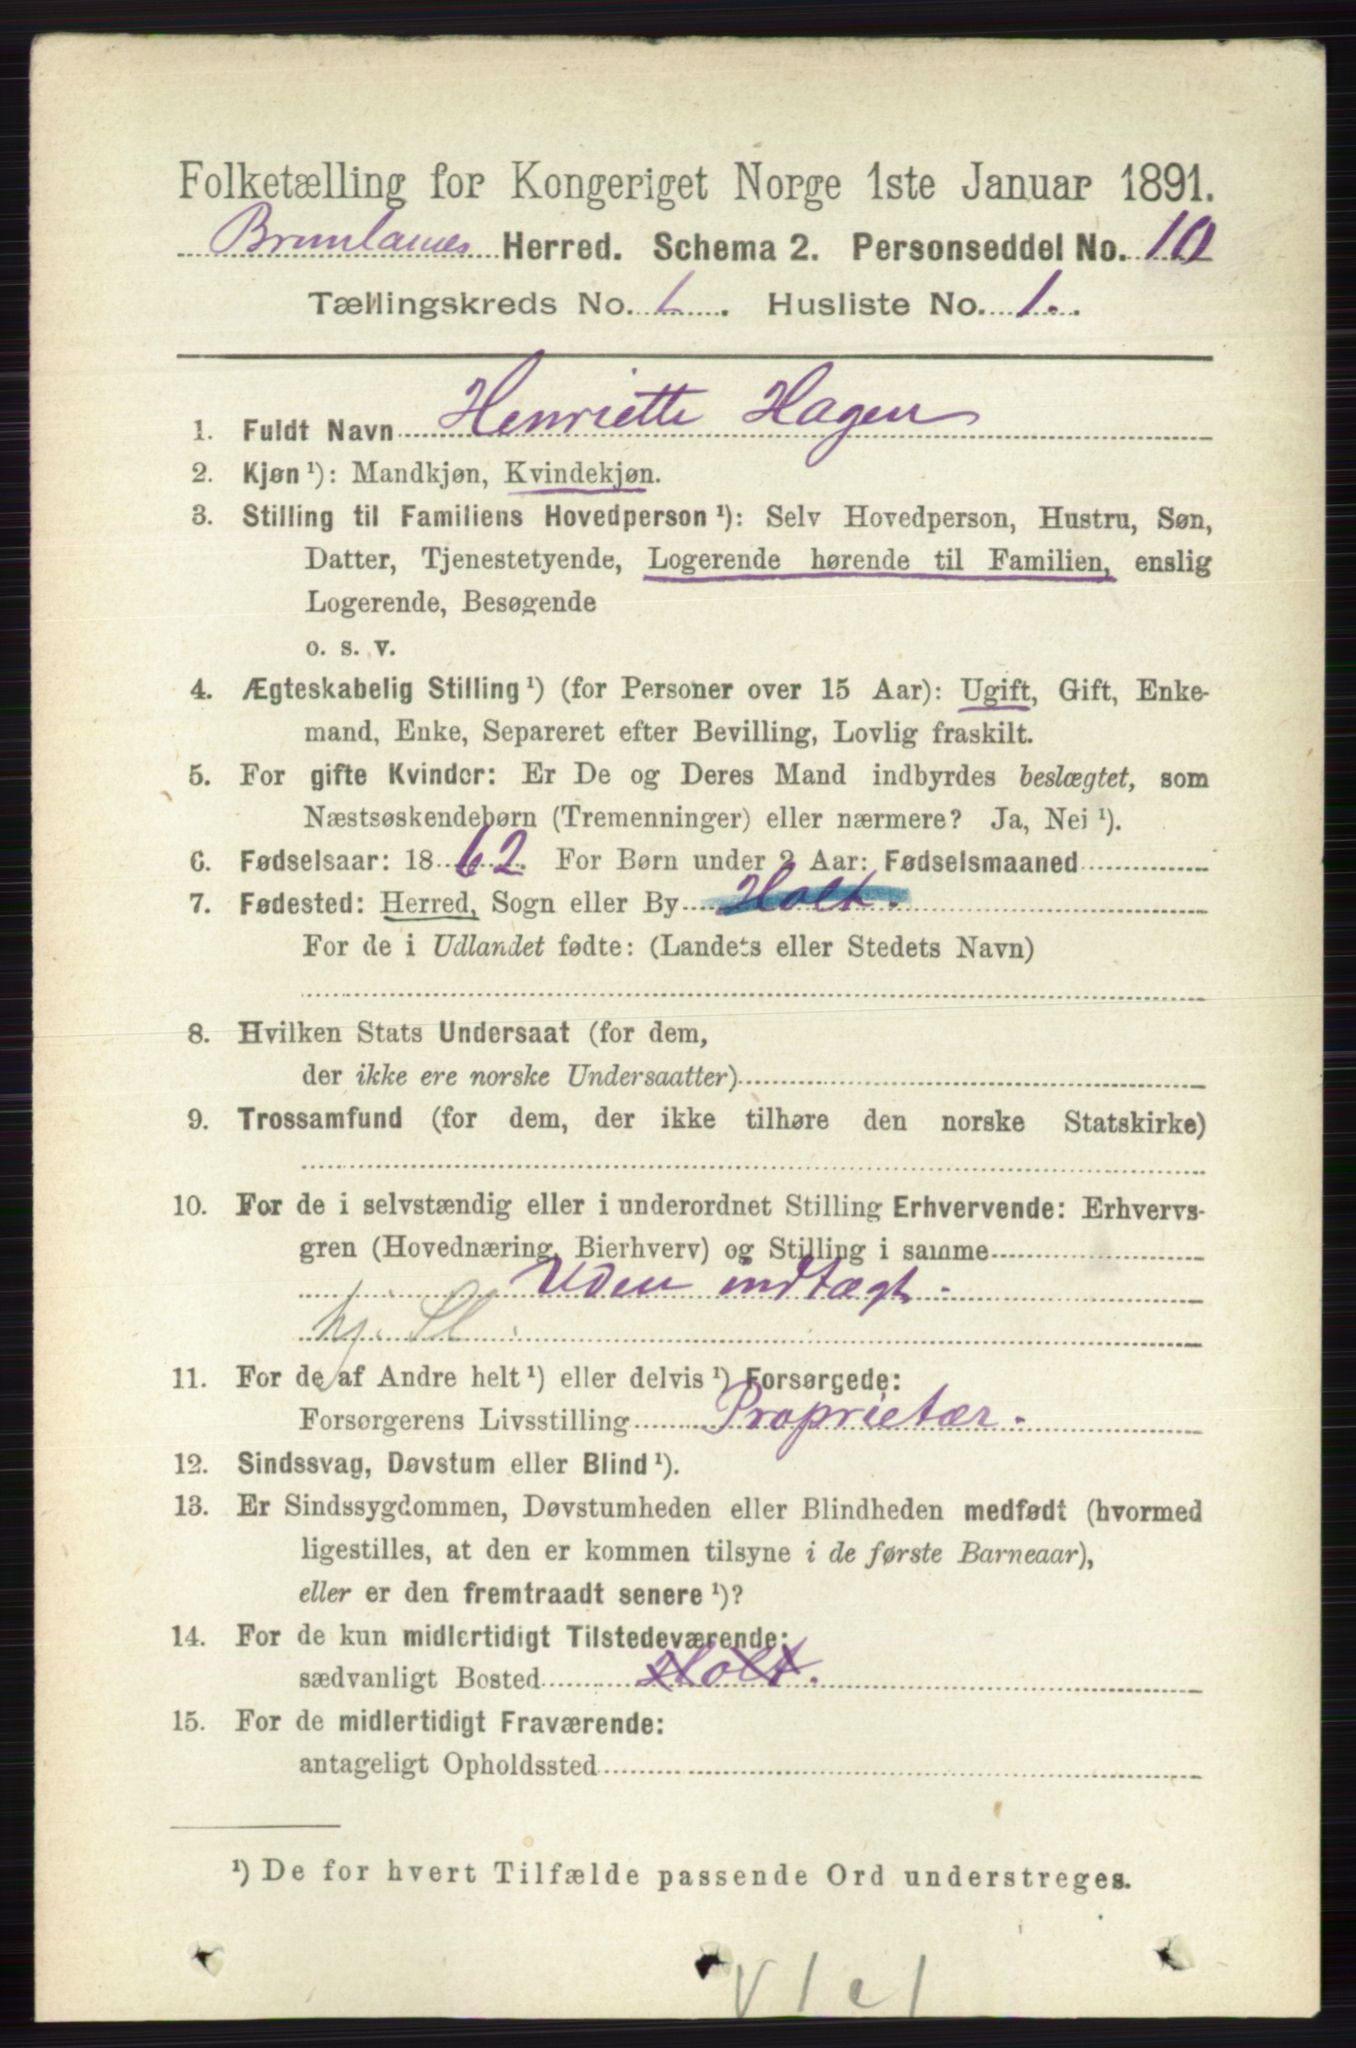 Folketælling for Kongeriget Norge 1ste Januar 1891.
Brunlanes Herred. Schema 2. Personseddel No. 10
Tællingskreds No. 1. Husliste No. 1.
1. Fuldt Navn Henriette Hagen
2. Kjøn ¹): Mandkjøn, Kvindekjøn.
3. Stilling til Familiens Hovedperson ¹): Selv Hovedperson, Hustru, Søn,
Datter, Tjenestetyende, Logerende hørende til Familien, enslig
Logerende, Besøgende
o. s. v.
4. Ægteskabelig Stilling ¹) (for Personer over 15 Aar): Ugift, Gift, Enke-
mand, Enke, Separeret efter Bevilling, Lovlig fraskilt.
5. For gifte Kvinder: Er De og Deres Mand indbyrdes beslægtet, som
Næstsøskendebørn (Tremenninger) eller nærmere? Ja, Nei ¹).
6. Fødselsaar: 1862 For Børn under 2 Aar: Fødselsmaaned
7. Fødested: Herred, Sogn eller By Holt.
For de i Udlandet fødte: (Landets eller Stedets Navn)
8. Hvilken Stats Undersaat (for dem,
der ikke ere norske Undersaatter)
9. Trossamfund (for dem, der ikke tilhøre den norske Statskirke)
10. For de i selvstændig eller i underordnet Stilling Erhvervende: Erhvervs-
gren (Hovednæring, Bierhverv) og Stilling i samme
Uden indtægt.
hj. Sl.
11. For de af Andre helt ¹) eller delvis ¹) Forsørgede:
Forsørgerens Livsstilling Proprietær.
12. Sindssvag, Døvstum eller Blind ¹).
13. Er Sindssygdommen, Døvstumheden eller Blindheden medfødt (hvormed
ligestilles, at den er kommen tilsyne i de første Barneaar),
eller er den fremtraadt senere ¹)?
14. For de kun midlertidigt Tilstedeværende:
sædvanligt Bosted Holt.
15. For de midlertidigt Fraværende:
antageligt Opholdssted
¹) De for hvert Tilfælde passende Ord understreges.